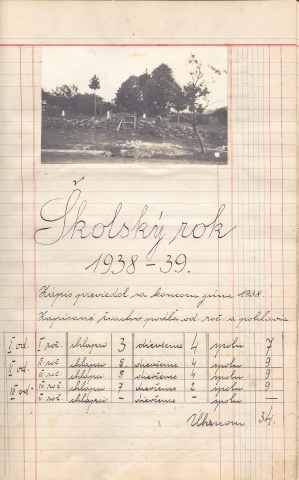 Školský rok
1938-39.
Zápis previedol sa koncom júna 1938
Zapísané žiactvo podľa od. roč. a pohlavia
I. od. I. roč. chlapci 3 dievčence 4 spolu 7
II. od. II. roč. chlapci 5 dievčence 4 spolu 9
III. roč. chlapci 5 dievčence 4 spolu 9
III. od. IV. roč. chlapci 7 dievčence 2 spolu 9
V. roč. chlapci - dievčence - spolu -
Úhrnom 34.